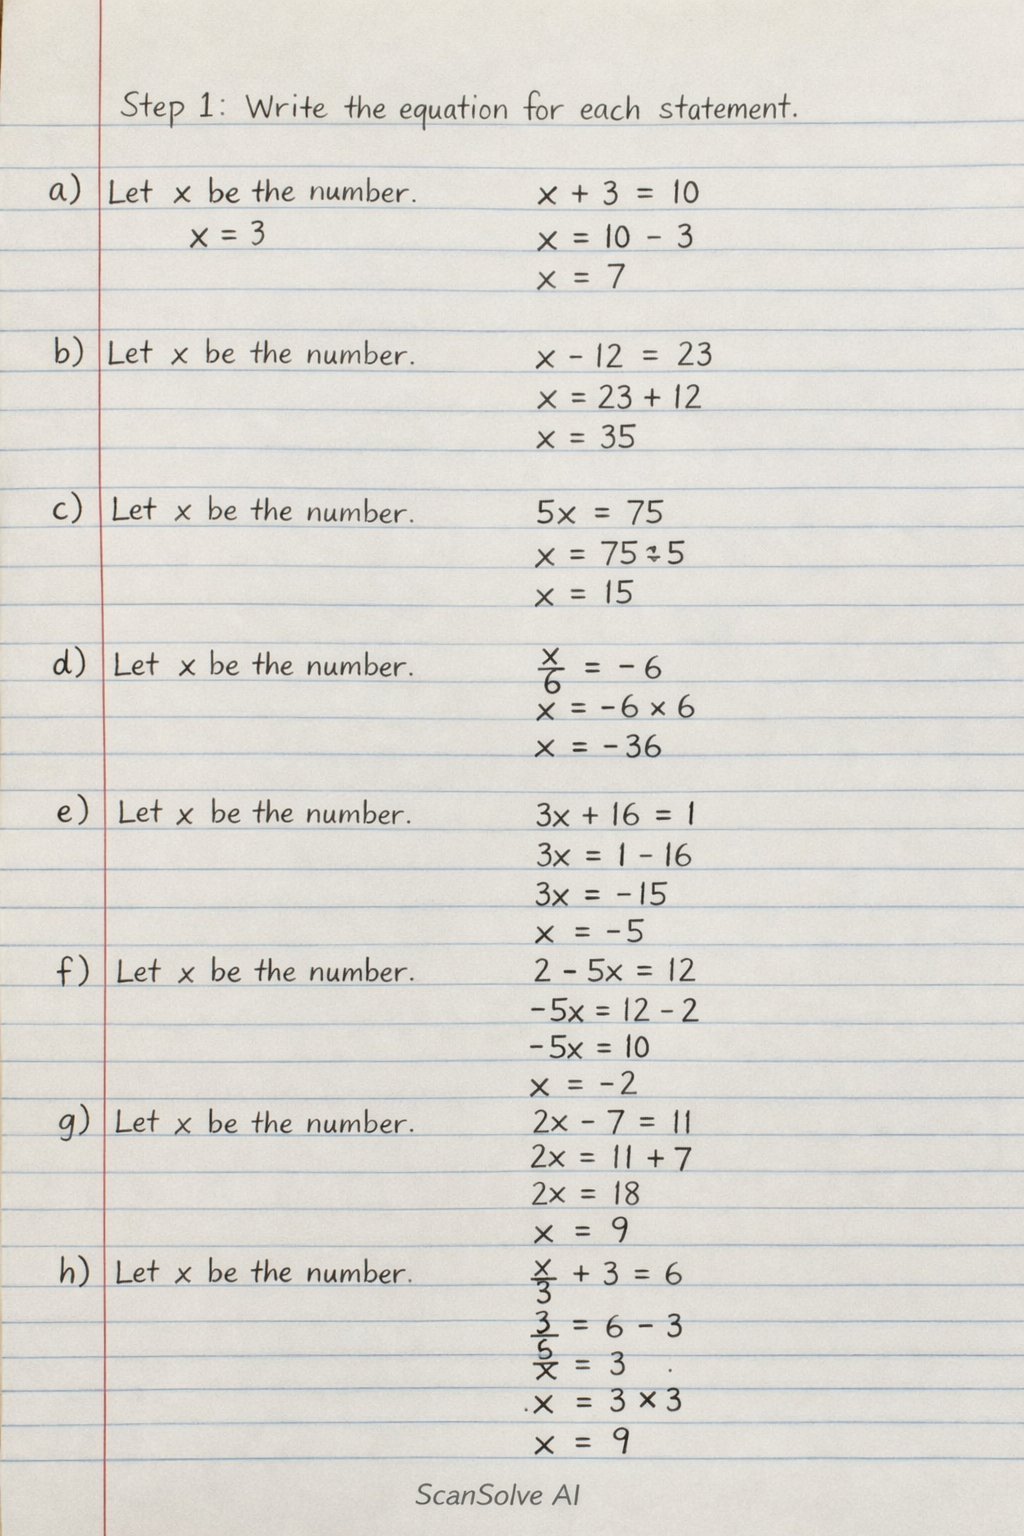 Step 1: Write the equation for each statement.
a) Let x be the number. x + 3 = 10
x = 3 x = 10 - 3
x = 7
b) Let x be the number. x - 12 = 23
x = 23 + 12
x = 35
c) Let x be the number. 5x = 75
x = 75 ÷ 5
x = 15
d) Let x be the number. x/6 = -6
x = -6 × 6
x = -36
e) Let x be the number. 3x + 16 = 1
3x = 1 - 16
3x = -15
x = -5
f) Let x be the number. 2 - 5x = 12
-5x = 12 - 2
-5x = 10
x = -2
g) Let x be the number. 2x - 7 = 11
2x = 11 + 7
2x = 18
x = 9
h) Let x be the number. x/3 + 3 = 6
3/5 = 6 - 3
/x = 3
x = 3 × 3
x = 9
ScanSolve AI